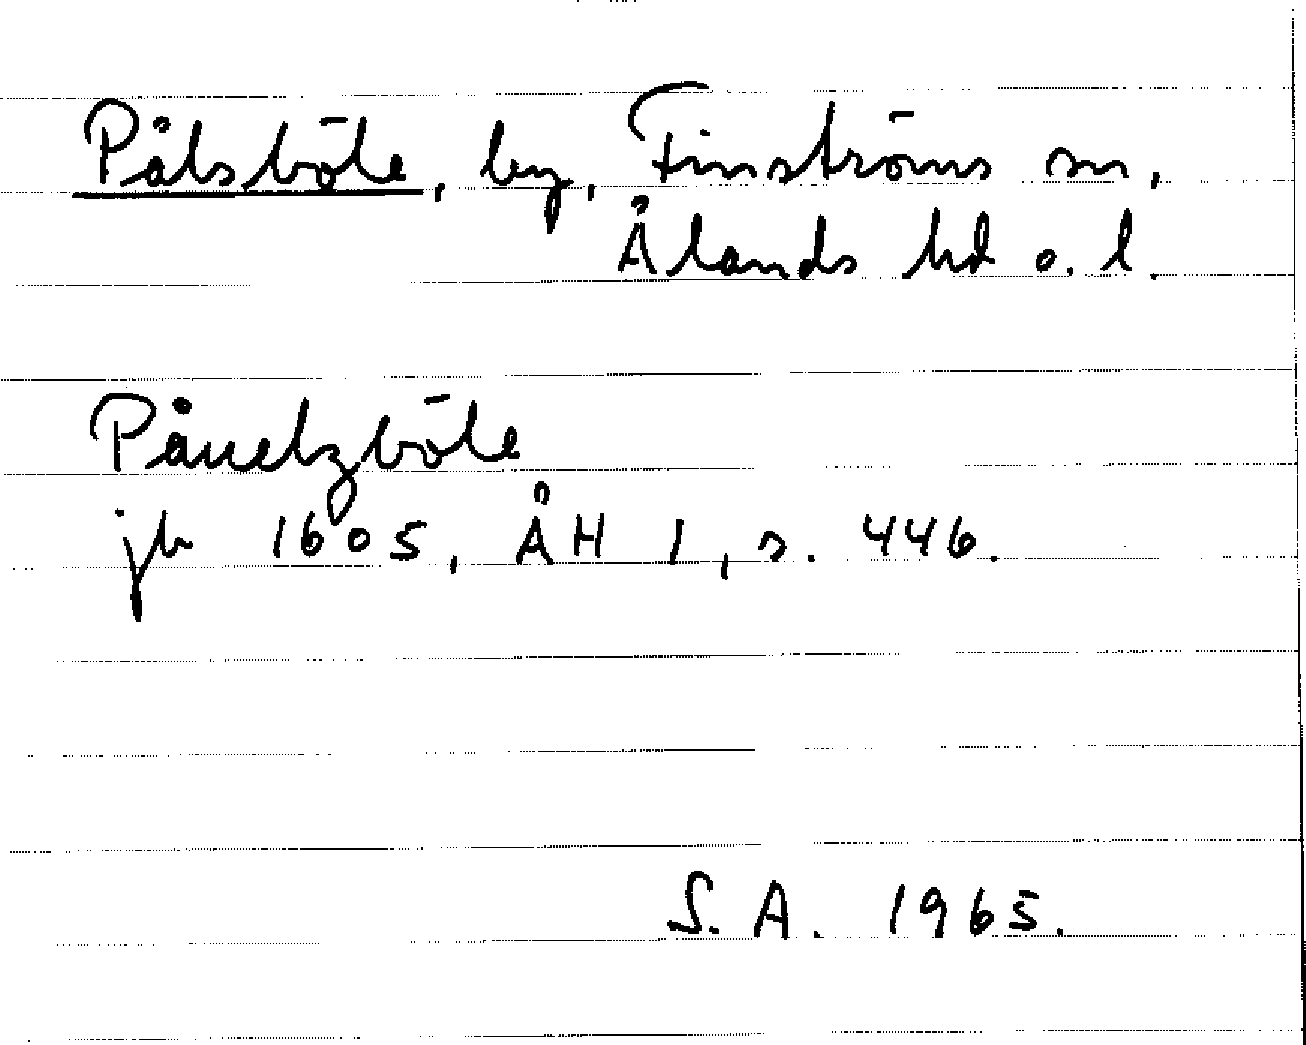 Pålsböle, by, Finströms sn,
Ålands hd o. l.
Påuelzböle
jb 1605, ÅH 1, s. 446.
S. A. 1965.